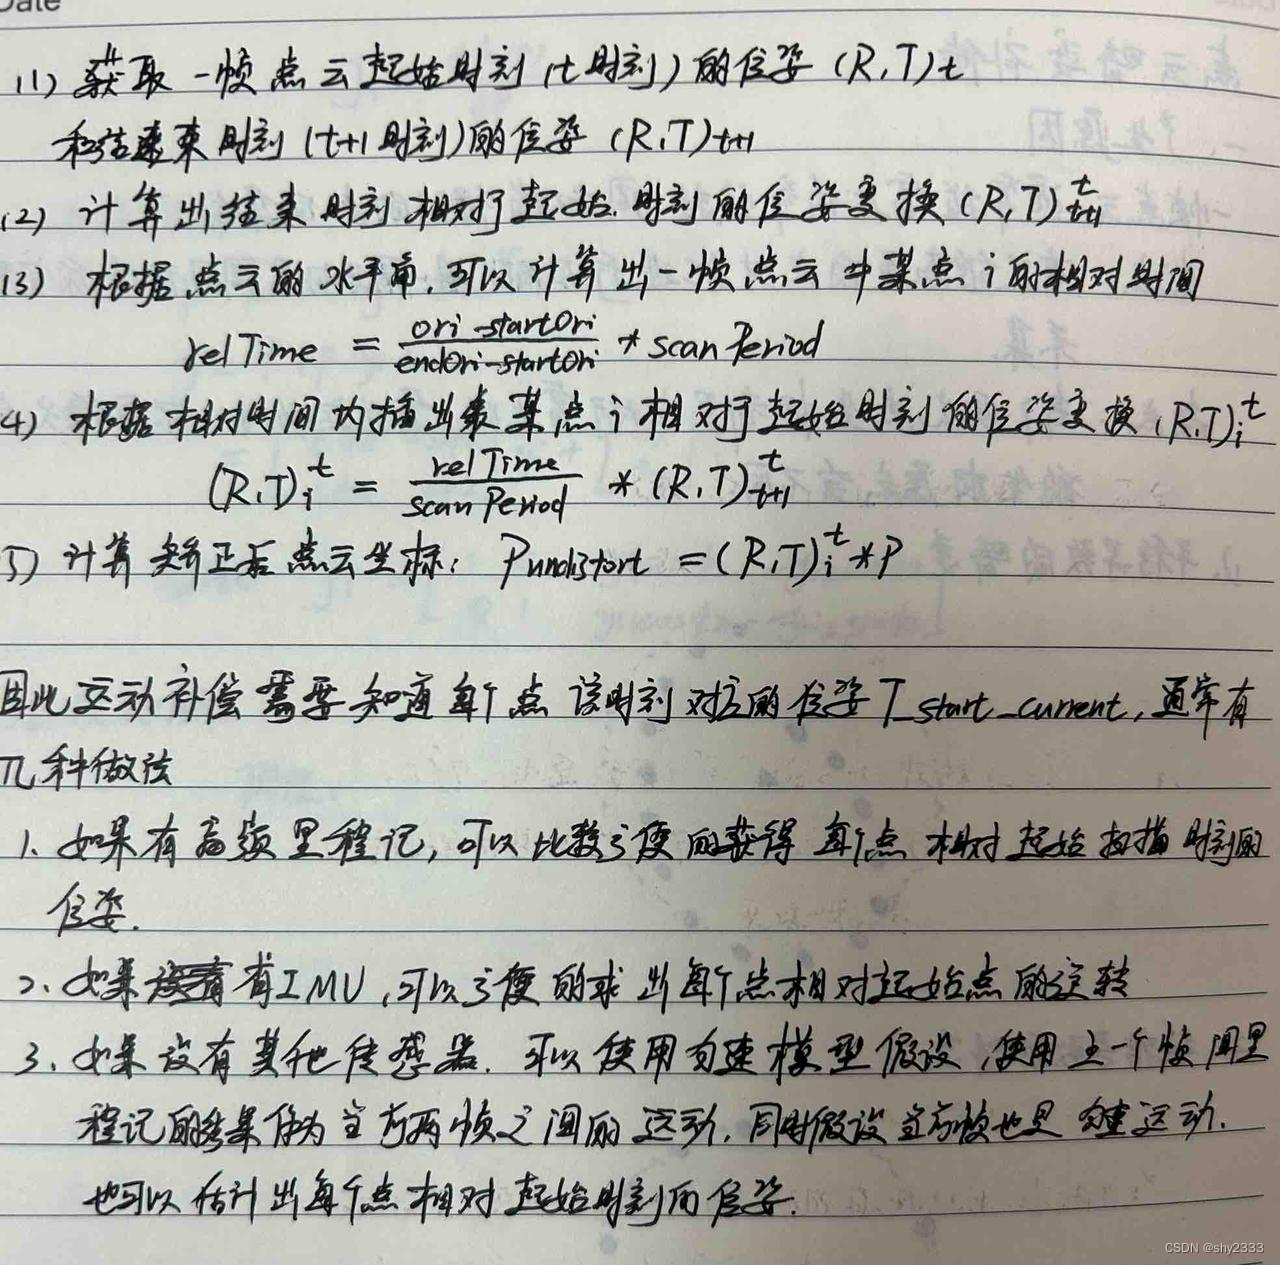 Date
(1) 获取一帧点云起始时刻(t时刻)的位姿 (R,T)t
和结束时刻(t+1时刻)的位姿 (R,T)t+1
(2) 计算出结束时刻相对于起始时刻的位姿变换 (R,T)^t_{t+1}
(3) 根据点云的水平角,可以计算出一帧点云中某点i的相对时间
relTime = \frac{ori-startOri}{endOri-startOri} * scanPeriod
(4) 根据相对时间内插出某点i相对于起始时刻的位姿变换 (R,T)^t_i
(R,T)^t_i = \frac{relTime}{scanPeriod} * (R,T)^t_{t+1}
5) 计算矫正后点云坐标: Pundistort = (R,T)^t_i * P
因此运动补偿需要知道每个点该时刻对应的位姿T_start_current,通常有
几种做法
1. 如果有高频里程记,可以比较方便的获得每个点相对起始扫描时刻的
位姿.
2. 如果有IMU,可以方便的求出每个点相对起始点的旋转
3. 如果没有其他传感器.可以使用匀速模型假设,使用上一个帧间里
程记的结果作为当前两帧之间的运动.同时假设当前帧也是匀速运动.
也可以估计出每个点相对起始时刻的位姿.
CSDN @shy2333